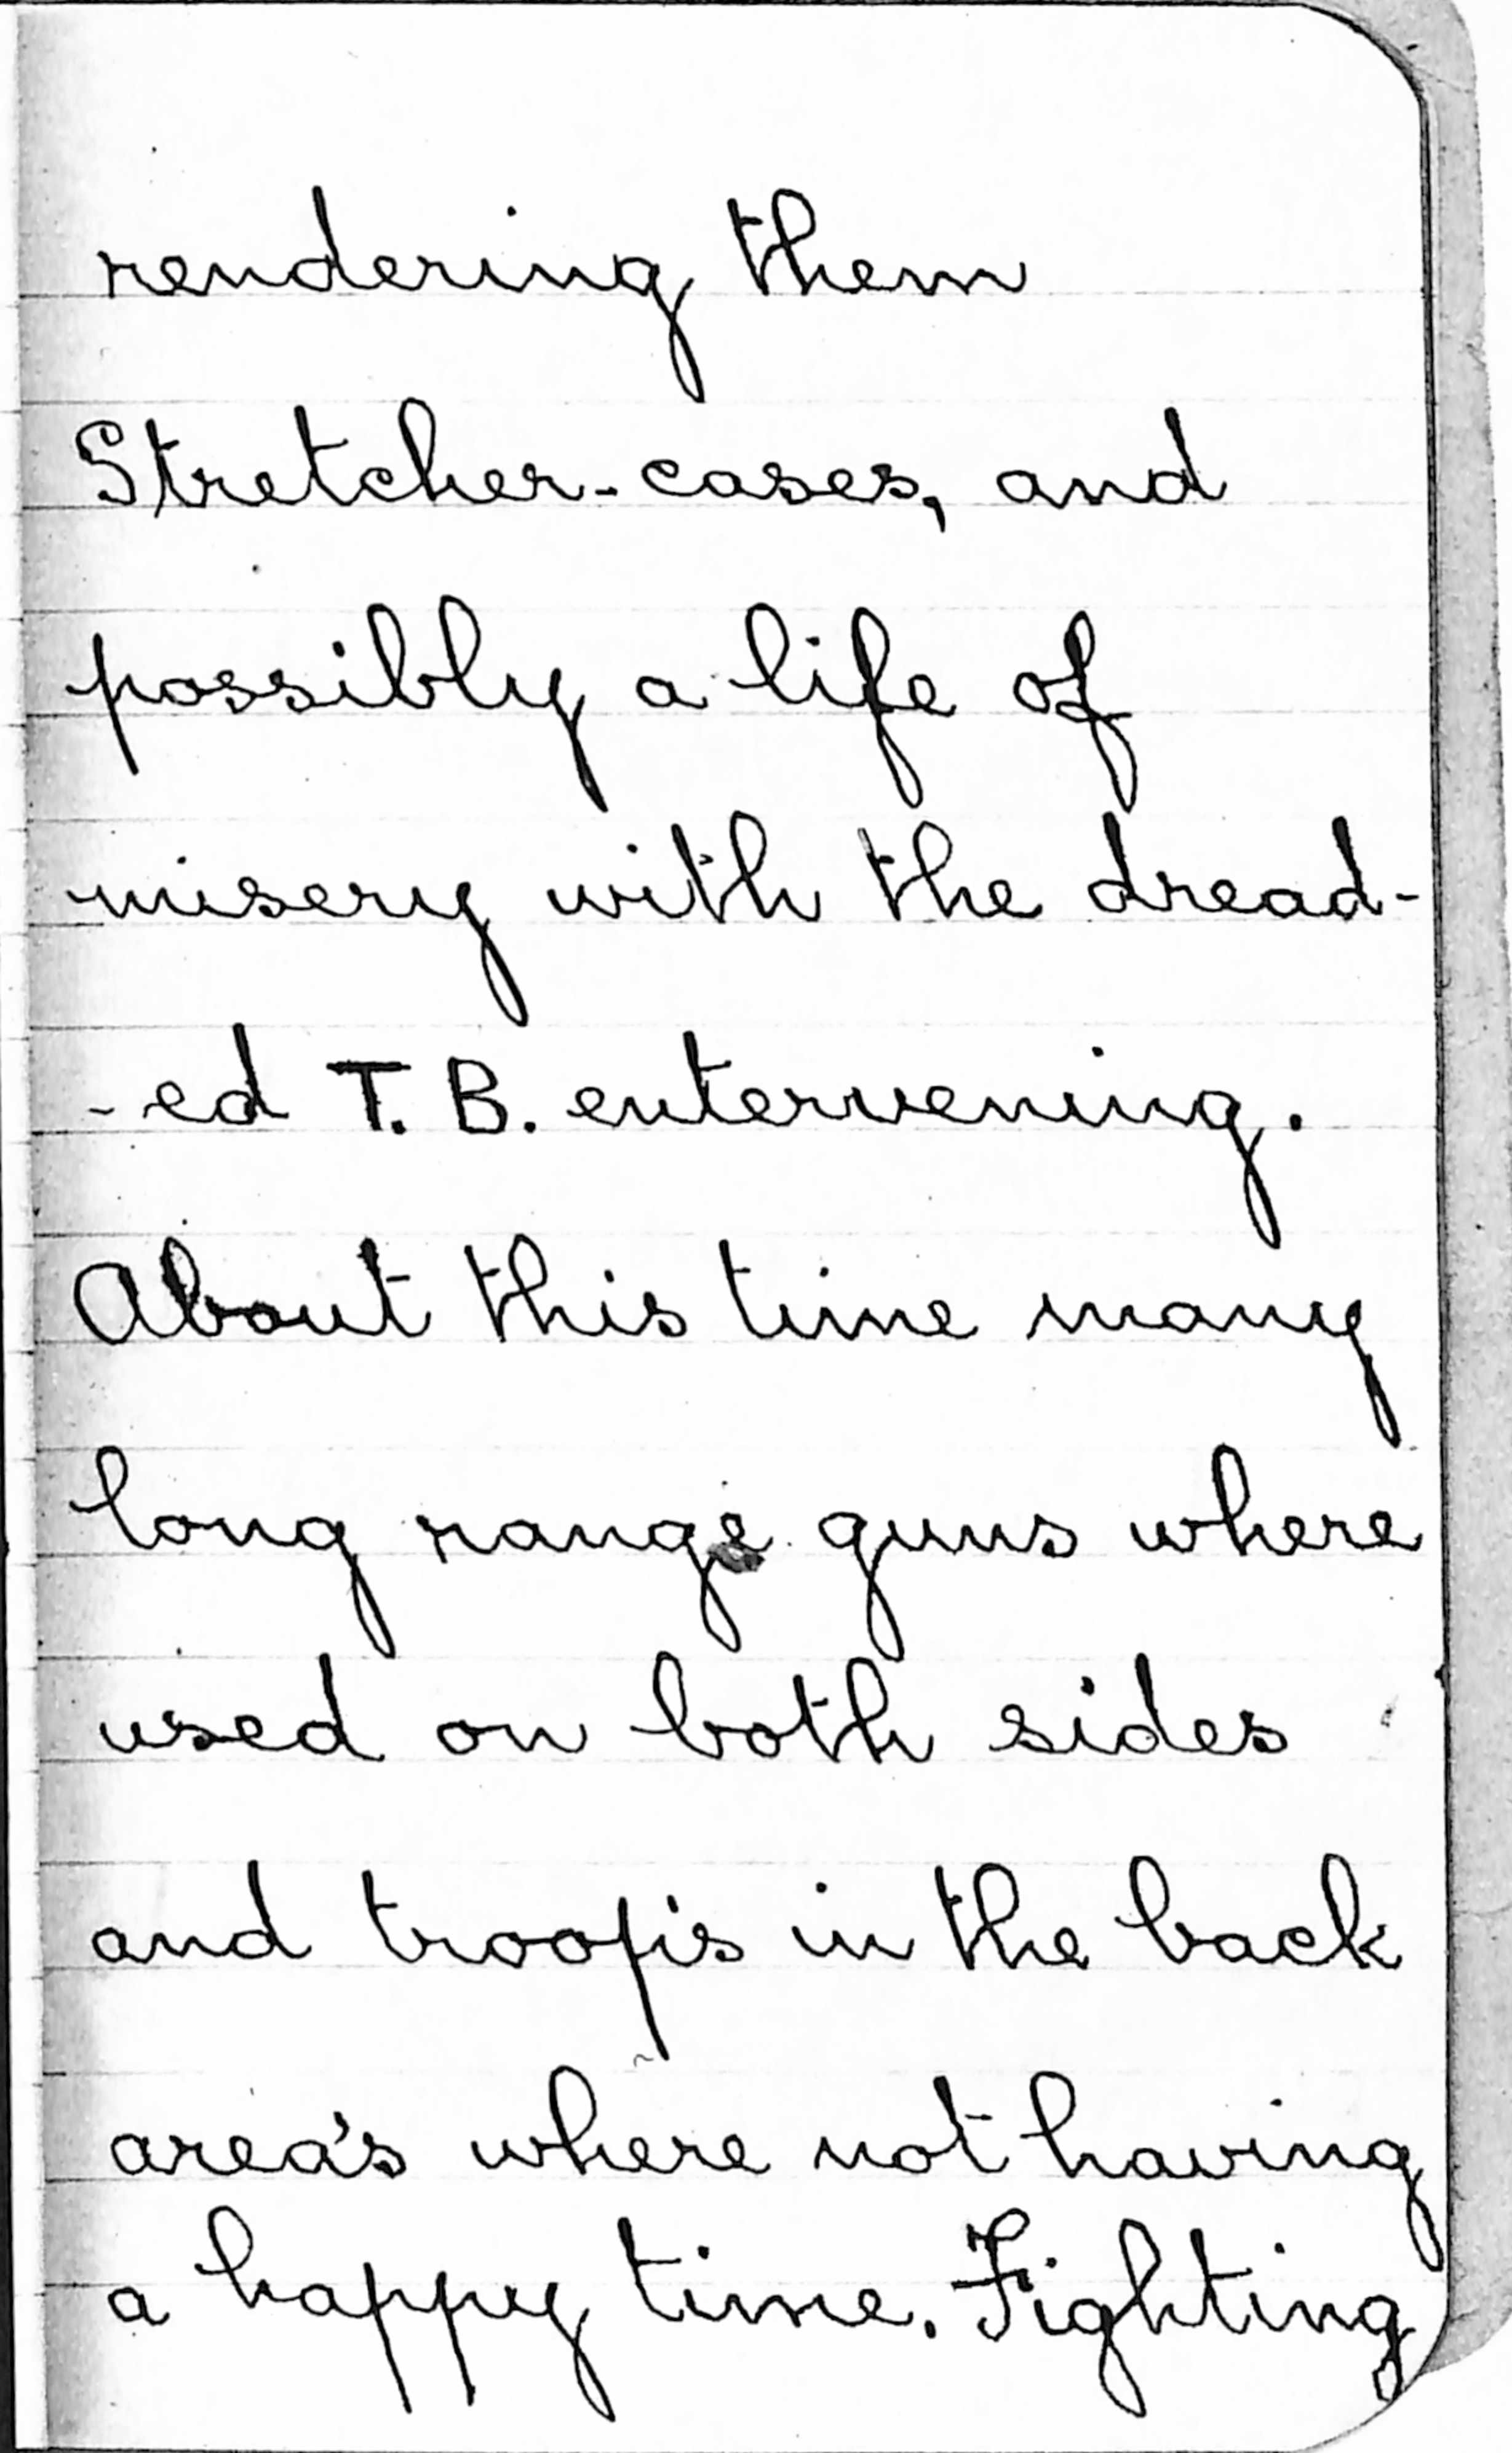 rendering them
Stretcher-cases, and
possibly a life of
misery with the dread-
-ed T. B. entervening.
About this time many
long range guns where
used on both sides
and troop's in the back
area's where not having
a happy time. Fighting